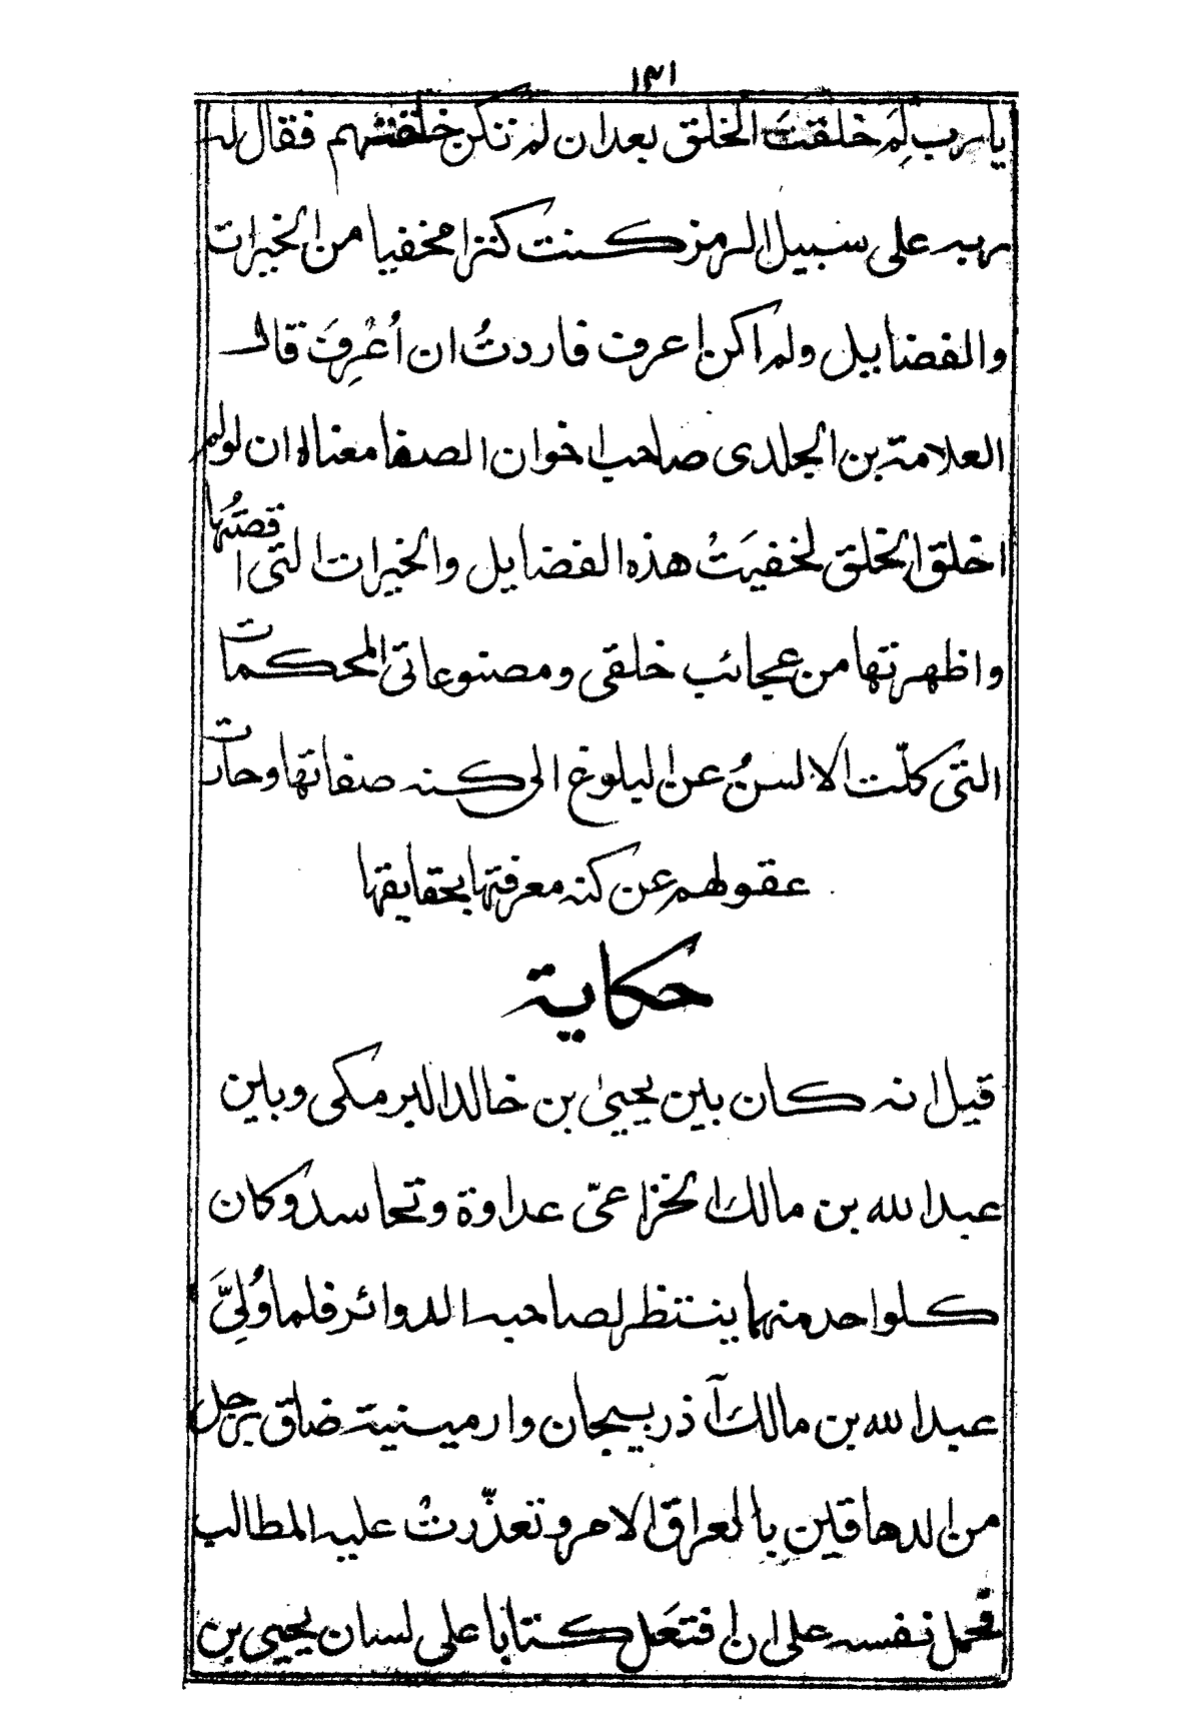 ١٣١
يا رب لِمَ خلقتَ الخلق بعد ان لم تكن خلقتهم فقال له
ربه على سبيل الرمز كنت كنزا مخفيا من الخيرات
والفضايل ولم اكن اعرف فاردتُ ان اُعْرِفَ قال
العلامة بن الجلدى صاحب اخوان الصفا معناه ان لو لم
اخلق الخلق لخفيَتْ هذه الفضايل والخيرات التى ا قصتُها
واظهرتها من عجائب خلقى ومصنوعاتى المحكمات
التى كلّت الالسنُ عن البلوغ الى كنه صفاتها وحارت
عقولهم عن كنه معرفتها بحقايقها
حكاية
قيل انه كان بين يحيى بن خالد البرمكى وبين
عبد الله بن مالك الخزاعىّ عداوة وتحاسد وكان
كل واحد منهما ينتظر لصاحبه الدوائر فلما وُلِىَّ
عبد الله بن مالك آذربيجان وارمينية ضاق برجل
من الدهاقين بالعراق الامر وتعذّرتْ عليه المطالب
فحمل نفسه على ان افتعَل كتابا على لسان يحيى بن